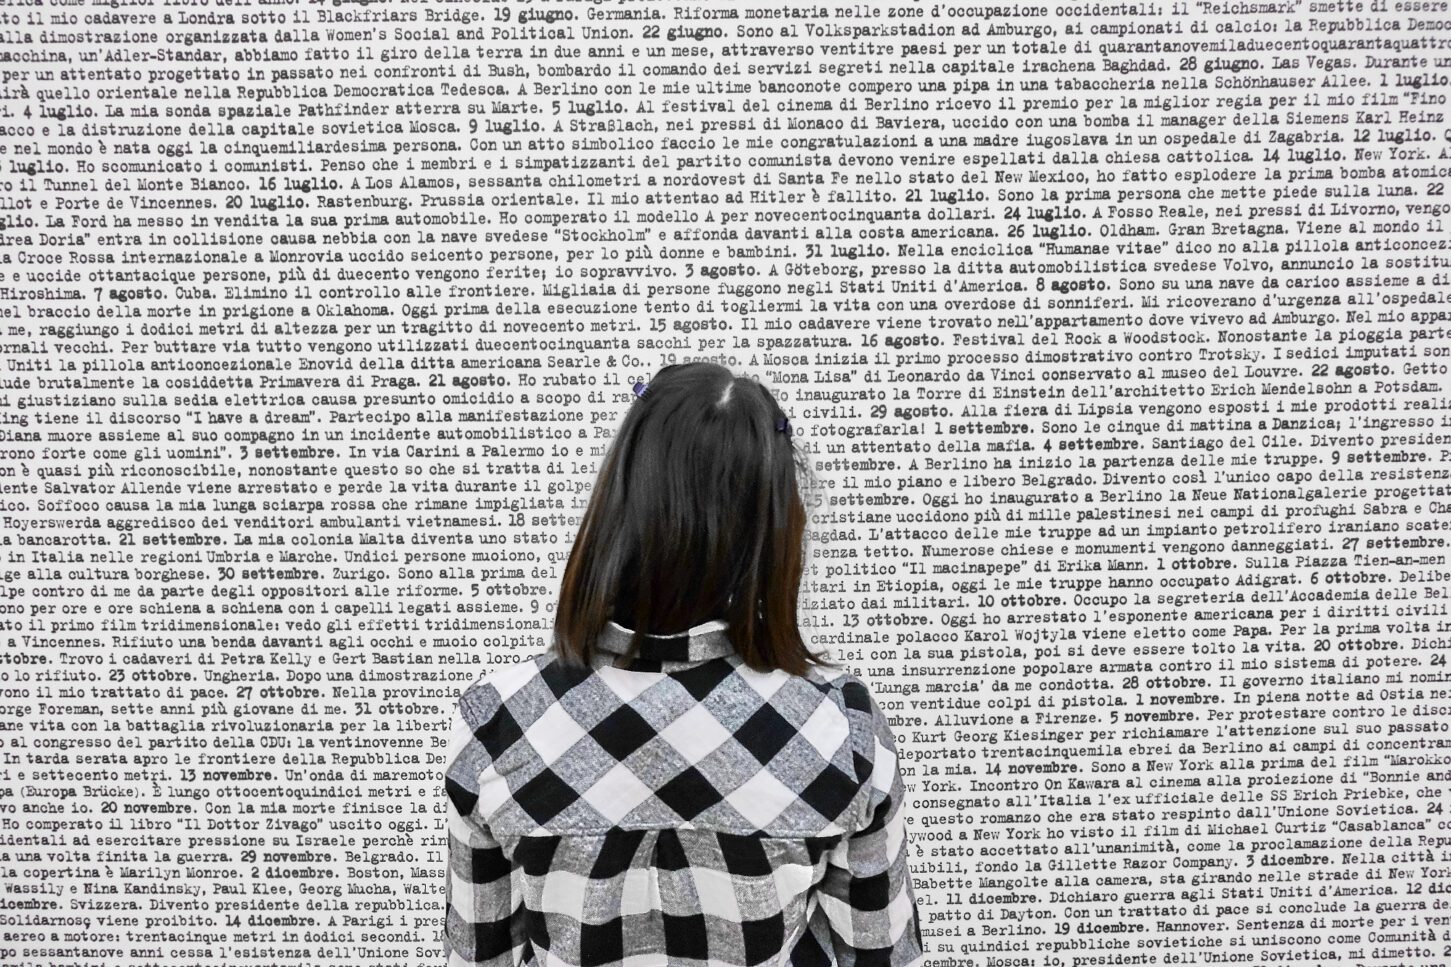 come miglior libro dell'anno. 14 giugno.
to il mio cadavere a Londra sotto il Blackfriars Bridge. 19 giugno. Germania. Riforma monetaria nelle zone d'occupazione occidentali: il "Reichsmark" smette di essere
alla dimostrazione organizzata dalla Women's Social and Political Union. 22 giugno. Sono al Volksparkstadion ad Amburgo, ai campionati di calcio: la Repubblica Democ
macchina, un'Adler-Standar, abbiamo fatto il giro della terra in due anni e un mese, attraverso ventitre paesi per un totale di quarantanovemiladuecentoquarantaquattr
per un attentato progettato in passato nei confronti di Bush, bombardo il comando dei servizi segreti nella capitale irachena Baghdad. 28 giugno. Las Vegas. Durante un
irà quello orientale nella Repubblica Democratica Tedesca. A Berlino con le mie ultime banconote compero una pipa in una tabaccheria nella Schönhauser Allee. 1 luglio
i. 4 luglio. La mia sonda spaziale Pathfinder atterra su Marte. 5 luglio. Al festival del cinema di Berlino ricevo il premio per la miglior regia per il mio film "Fino
acco e la distruzione della capitale sovietica Mosca. 9 luglio. A Straßlach, nei pressi di Monaco di Baviera, uccido con una bomba il manager della Siemens Karl Heinz
e nel mondo è nata oggi la cinquemiliardesima persona. Con un atto simbolico faccio le mie congratulazioni a una madre iugoslava in un ospedale di Zagabria. 12 luglio.
luglio. Ho scomunicato i comunisti. Penso che i membri e i simpatizzanti del partito comunista devono venire espellati dalla chiesa cattolica. 14 luglio. New York. A
ro il Tunnel del Monte Bianco. 16 luglio. A Los Alamos, sessanta chilometri a nordovest di Santa Fe nello stato del New Mexico, ho fatto esplodere la prima bomba atomica
llot e Porte de Vincennes. 20 luglio. Rastenburg. Prussia orientale. Il mio attentao ad Hitler è fallito. 21 luglio. Sono la prima persona che mette piede sulla luna. 22
glio. La Ford ha messo in vendita la sua prima automobile. Ho comperato il modello A per novecentocinquanta dollari. 24 luglio. A Fosso Reale, nei pressi di Livorno, vengo
drea Doria" entra in collisione causa nebbia con la nave svedese "Stockholm" e affonda davanti alla costa americana. 26 luglio. Oldham. Gran Bretagna. Viene al mondo il
a Croce Rossa internazionale a Monrovia uccido seicento persone, per lo più donne e bambini. 31 luglio. Nella enciclica "Humanae vitae" dico no alla pillola anticoncezi
e e uccide ottantacique persone, più di duecento vengono ferite; io sopravvivo. 3 agosto. A Göteborg, presso la ditta automobilistica svedese Volvo, annuncio la sostitu
Hiroshima. 7 agosto. Cuba. Elimino il controllo alle frontiere. Migliaia di persone fuggono negli Stati Uniti d'America. 8 agosto. Sono su una nave da carico assieme a di
nel braccio della morte in prigione a Oklahoma. Oggi prima della esecuzione tento di togliermi la vita con una overdose di sonniferi. Mi ricoverano d'urgenza all'ospedale
me, raggiungo i dodici metri di altezza per un tragitto di novecento metri. 15 agosto. Il mio cadavere viene trovato nell'appartamento dove vivevo ad Amburgo. Nel mio appar
ornali vecchi. Per buttare via tutto vengono utilizzati duecentocinquanta sacchi per la spazzatura. 16 agosto. Festival del Rock a Woodstock. Nonostante la pioggia parte
Uniti la pillola anticoncezionale Enovid della ditta americana Searle & Co.. 19 agosto. A Mosca inizia il primo processo dimostrativo contro Trotsky. I sedici imputati son
lude brutalmente la cosiddetta Primavera di Praga. 21 agosto. Ho rubato il cel "Mona Lisa" di Leonardo da Vinci conservato al museo del Louvre. 22 agosto. Getto
i giustiziano sulla sedia elettrica causa presunto omicidio a scopo di ra Ho inaugurato la Torre di Einstein dell'architetto Erich Mendelsohn a Potsdam.
ing tiene il discorso "I have a dream". Partecipo alla manifestazione per i civili. 29 agosto. Alla fiera di Lipsia vengono esposti i mie prodotti reali
Diana muore assieme al suo compagno in un incidente automobilistico a Pa o fotografarla! 1 settembre. Sono le cinque di mattina a Danzica; l'ingresso i
rono forte come gli uomini". 3 settembre. In via Carini a Palermo io e mi di un attentato della mafia. 4 settembre. Santiago del Cile. Divento presiden
on è quasi più riconoscibile, nonostante questo so che si tratta di lei settembre. A Berlino ha inizio la partenza delle mie truppe. 9 settembre.
ente Salvator Allende viene arrestato e perde la vita durante il golpe ere il mio piano e libero Belgrado. Divento così l'unico capo della resistenz
ico. Soffoco causa la mia lunga sciarpa rossa che rimane impigliata in 5 settembre. Oggi ho inaugurato a Berlino la Neue Nationalgalerie progettat
Hoyerswerda aggredisco dei venditori ambulanti vietnamesi. 18 sette cristiane uccidono più di mille palestinesi nei campi di profughi Sabra e Cha
a bancarotta. 21 settembre. La mia colonia Malta diventa uno stato i Bagdad. L'attacco delle mie truppe ad un impianto petrolifero iraniano scate
in Italia nelle regioni Umbria e Marche. Undici persone muoiono, qua senza tetto. Numerose chiese e monumenti vengono danneggiati. 27 settembre.
ge alla cultura borghese. 30 settembre. Zurigo. Sono alla prima del et politico "Il macinapepe" di Erika Mann. 1 ottobre. Sulla Piazza Tien-an-men
lpe contro di me da parte degli oppositori alle riforme. 5 ottobre. itari in Etiopia, oggi le mie truppe hanno occupato Adigrat. 6 ottobre. Delibe
ono per ore e ore schiena a schiena con i capelli legati assieme. 9 o iziato dai militari. 10 ottobre. Occupo la segreteria dell'Accademia delle Bel
ato il primo film tridimensionale: vedo gli effetti tridimensionali ali. 13 ottobre. Oggi ho arrestato l'esponente americana per i diritti civili
a Vincennes. Rifiuto una benda davanti agli occhi e muoio colpita cardinale polacco Karol Wojtyla viene eletto come Papa. Per la prima volta in
ttobre. Trovo i cadaveri di Petra Kelly e Gert Bastian nella loro lei con la sua pistola, poi si deve essere tolto la vita. 20 ottobre. Dich
o lo rifiuto. 23 ottobre. Ungheria. Dopo una dimostrazione d ia una insurrezione popolare armata contro il mio sistema di potere. 24
vono il mio trattato di pace. 27 ottobre. Nella provincia 'Lunga marcia' da me condotta. 28 ottobre. Il governo italiano mi nomin
orge Foreman, sette anni più giovane di me. 31 ottobre. con ventidue colpi di pistola. 1 novembre. In piena notte ad Ostia ne
ane vita con la battaglia rivoluzionaria per la libert mbre. Alluvione a Firenze. 5 novembre. Per protestare contro le disc
o al congresso del partito della CDU: la ventinovenne Be o Kurt Georg Kiesinger per richiamare l'attenzione sul suo passato
In tarda serata apro le frontiere della Repubblica De deportato trentacinquemila ebrei da Berlino ai campi di concentra
ri e settecento metri. 13 novembre. Un'onda di maremoto on la mia. 14 novembre. Sono a New York alla prima del film "Marokko
pa (Europa Brücke). È lungo ottocentoquindici metri e fa w York. Incontro On Kawara al cinema alla proiezione di "Bonnie and
vo anche io. 20 novembre. Con la mia morte finisce la di consegnato all'Italia l'ex ufficiale delle SS Erich Priebke, che
Ho comperato il libro "Il Dottor Zivago" uscito oggi. L' e questo romanzo che era stato respinto dall'Unione Sovietica. 24
identali ad esercitare pressione su Israele perchè rin ywood a New York ho visto il film di Michael Curtiz "Casablanca" c
a una volta finita la guerra. 29 novembre. Belgrado. Il è stato accettato all'unanimità, come la proclamazione della Repu
la copertina è Marilyn Monroe. 2 dicembre. Boston, Mass uibili, fondo la Gillette Razor Company. 3 dicembre. Nella città i
Wassily e Nina Kandinsky, Paul Klee, Georg Mucha, Walte Babette Mangolte alla camera, sta girando nelle strade di New York
icembre. Svizzera. Divento presidente della repubblica. el. 11 dicembre. Dichiaro guerra agli Stati Uniti d'America. 12 dic
Solidarnosç viene proibito. 14 dicembre. A Parigi i pres patto di Dayton. Con un trattato di pace si conclude la guerra de
aereo a motore: trentacinque metri in dodici secondi. 18 musei a Berlino. 19 dicembre. Hannover. Sentenza di morte per i ven
po sessantanove anni cessa l'esistenza dell'Unione Sovi i su quindici repubbliche sovietiche si uniscono come Comunità d
cembre. Mosca: io, presidente dell'Unione Sovietica, mi dimetto.